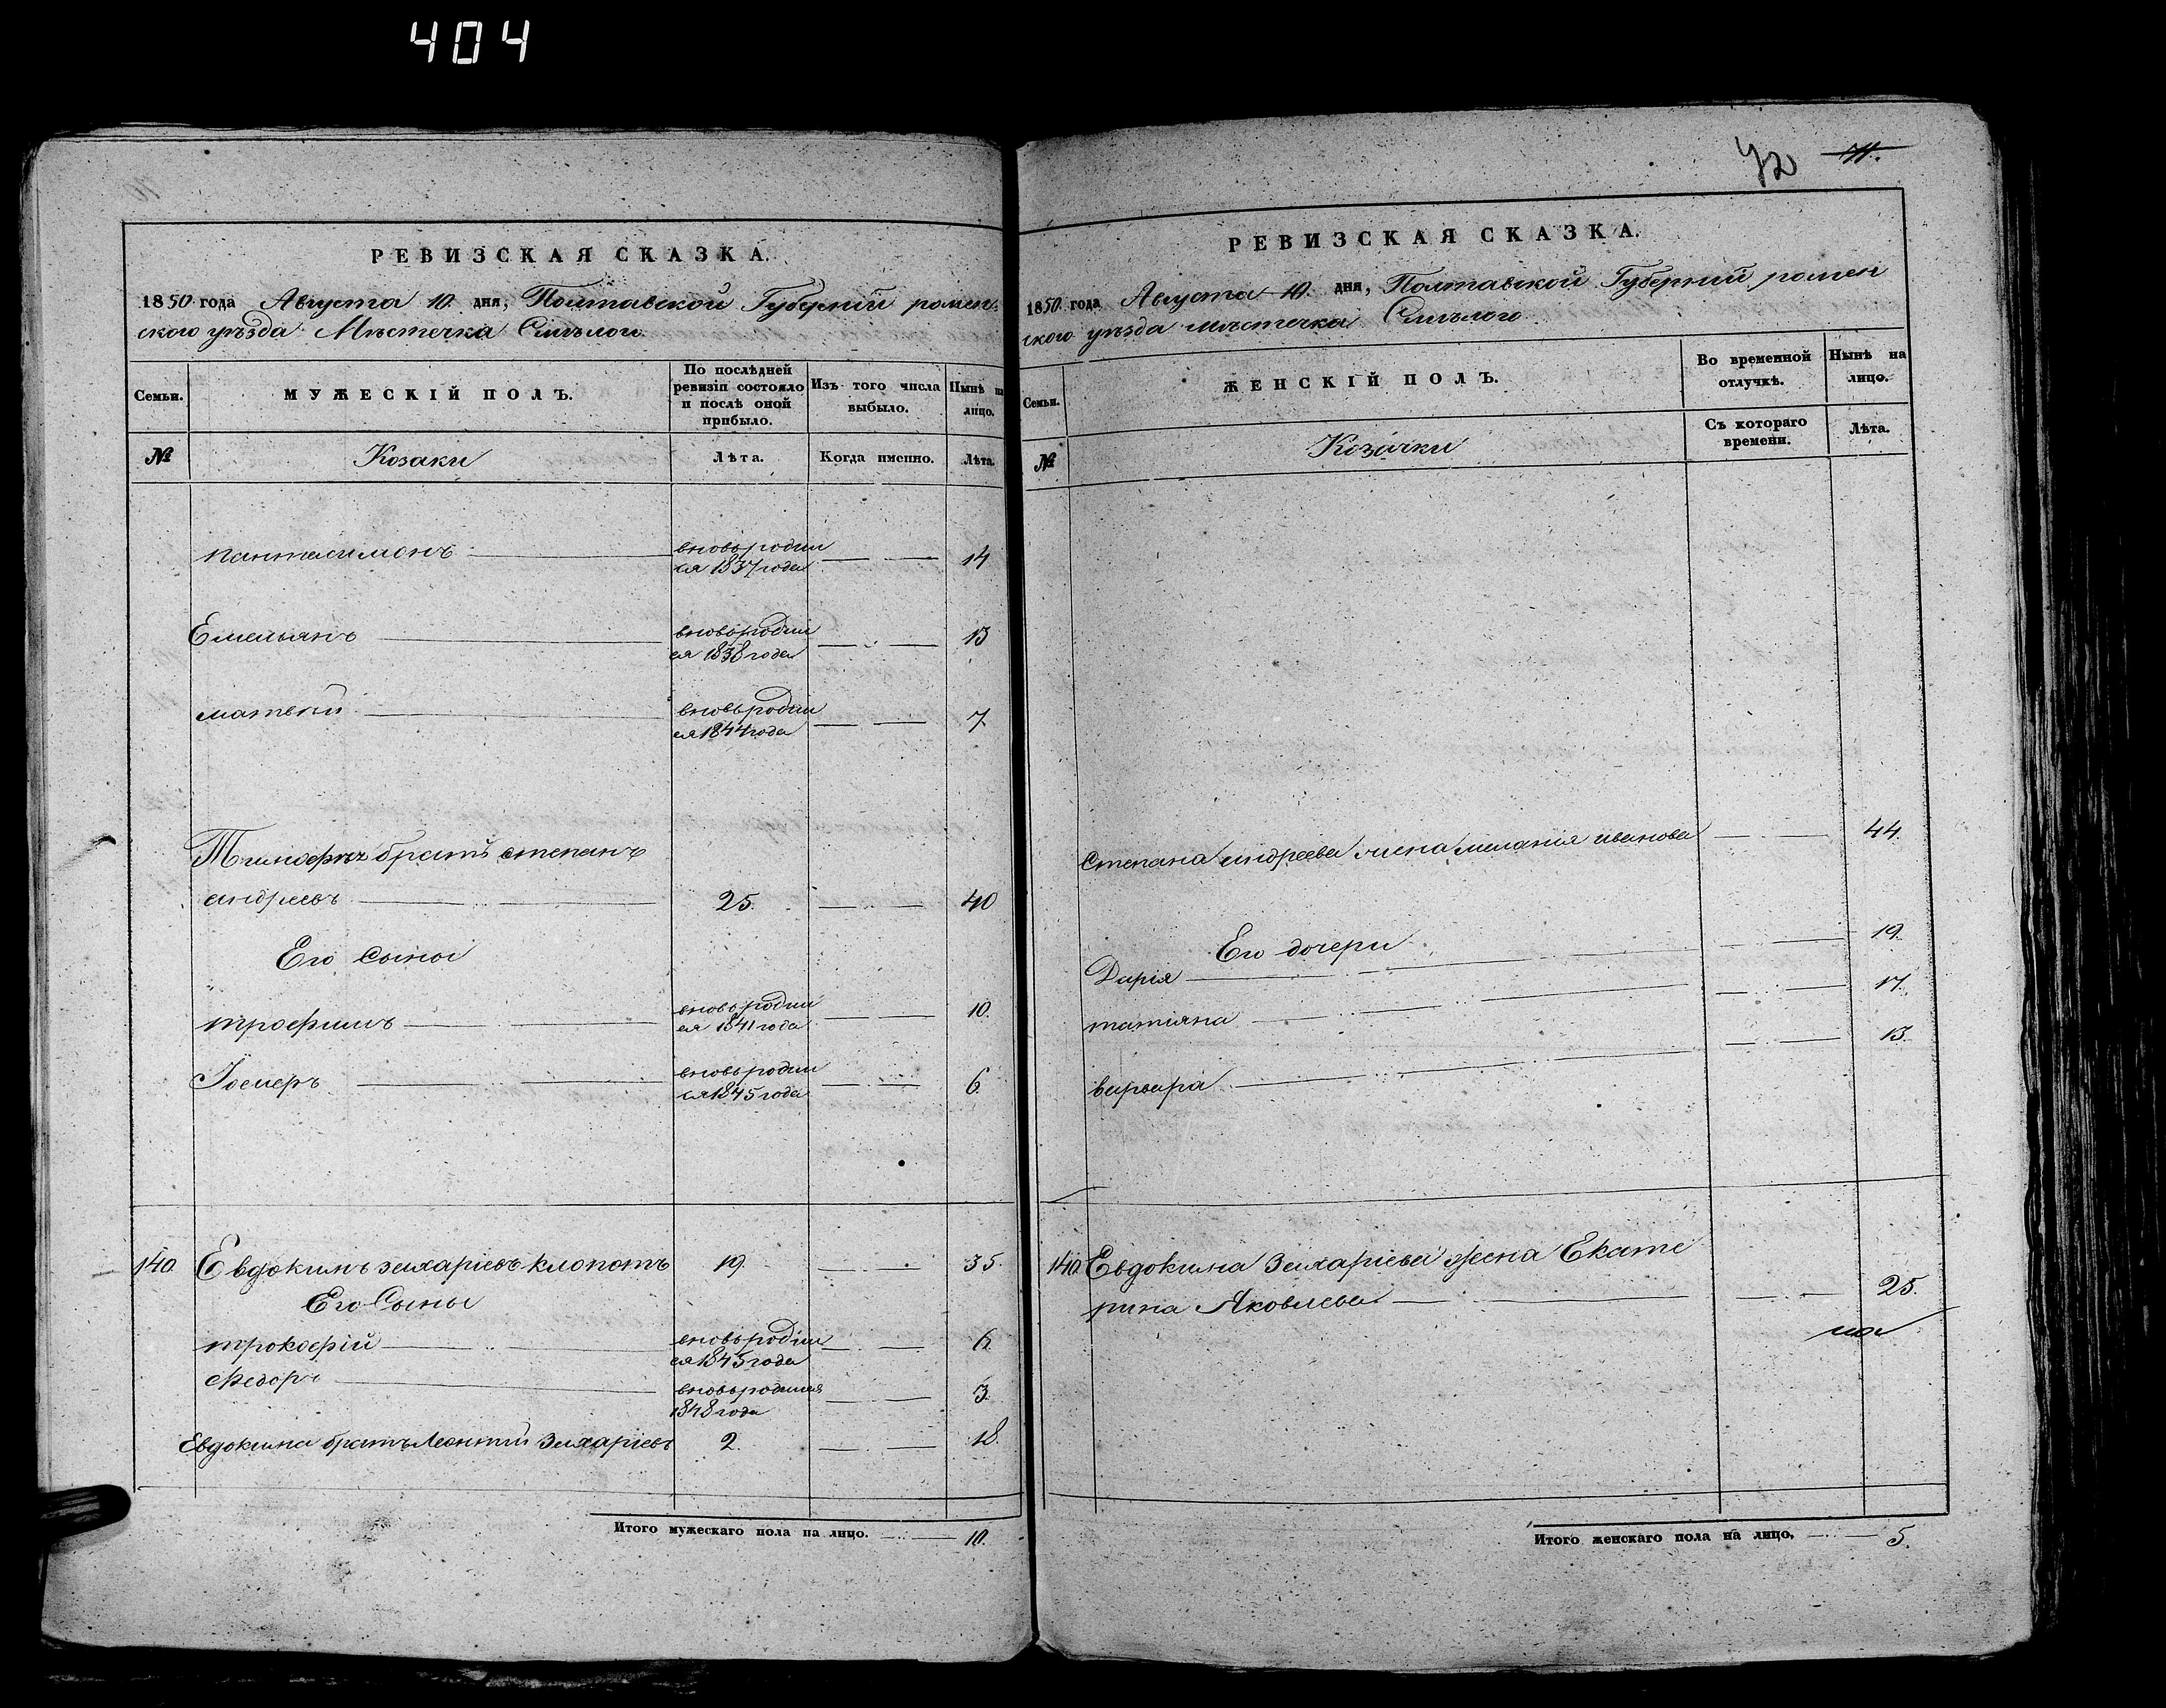 404
РЕВИЗСКАЯ СКАЗКА.
1850 года Августа 10 дня, Полтавской Губерніи ромен-
ского уѣзда Мѣстечка Смѣлого
Семьи.
МУЖЕСКІЙ ПОЛЪ.
По послѣдней ревизіи состояло и послѣ оной прибыло.
Изъ того числа выбыло.
Нынѣ на лицо.
№
Козаки
Лѣта.
Когда именно.
Лѣта.
пантелимонъ вновьродил
ся 1837 года 14
Емельянъ вновьродил
ся 1838 года 13
матвѣй вновьродил
ся 1844 года 7
братъ степанъ
андреевъ 25. 40
Его Сыны
трофимъ вновьродил
ся 1841 года 10.
вновьродил
ся 1845 года 6.
140 Евдокимъ захаріевъ клопотъ 19. 35.
Его Сыны
вновьродил
ся 1845 года 6.
Федоръ вновьродился
1848 года 3.
Евдокима братъ Леонтій Захаріевъ 2. 18.
Итого мужескаго пола на лицо. 10.
72 71.
РЕВИЗСКАЯ СКАЗКА.
1850 года Августа 10. дня, Полтавской Губерніи ромен
ского уѣзда мѣстечка Смѣлого
Семьи.
ЖЕНСКІЙ ПОЛЪ.
Во временной отлучкѣ.
Нынѣ на лицо.
№
Козачки
Съ котораго времени.
Лѣта.
Степана андреева жена меланія иванова 44.
Его дочери
Дарія 19.
татіяна 17.
варвара 13.
140 Евдокима Захаріева жена Екате
рина Яковлева 25.
Итого женскаго пола на лицо, 5.